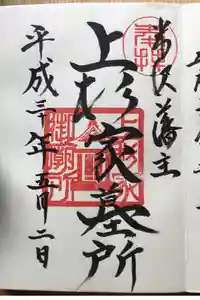 米沢藩主
上杉家墓所
平成三十年五月二日
上杉家
御廟所